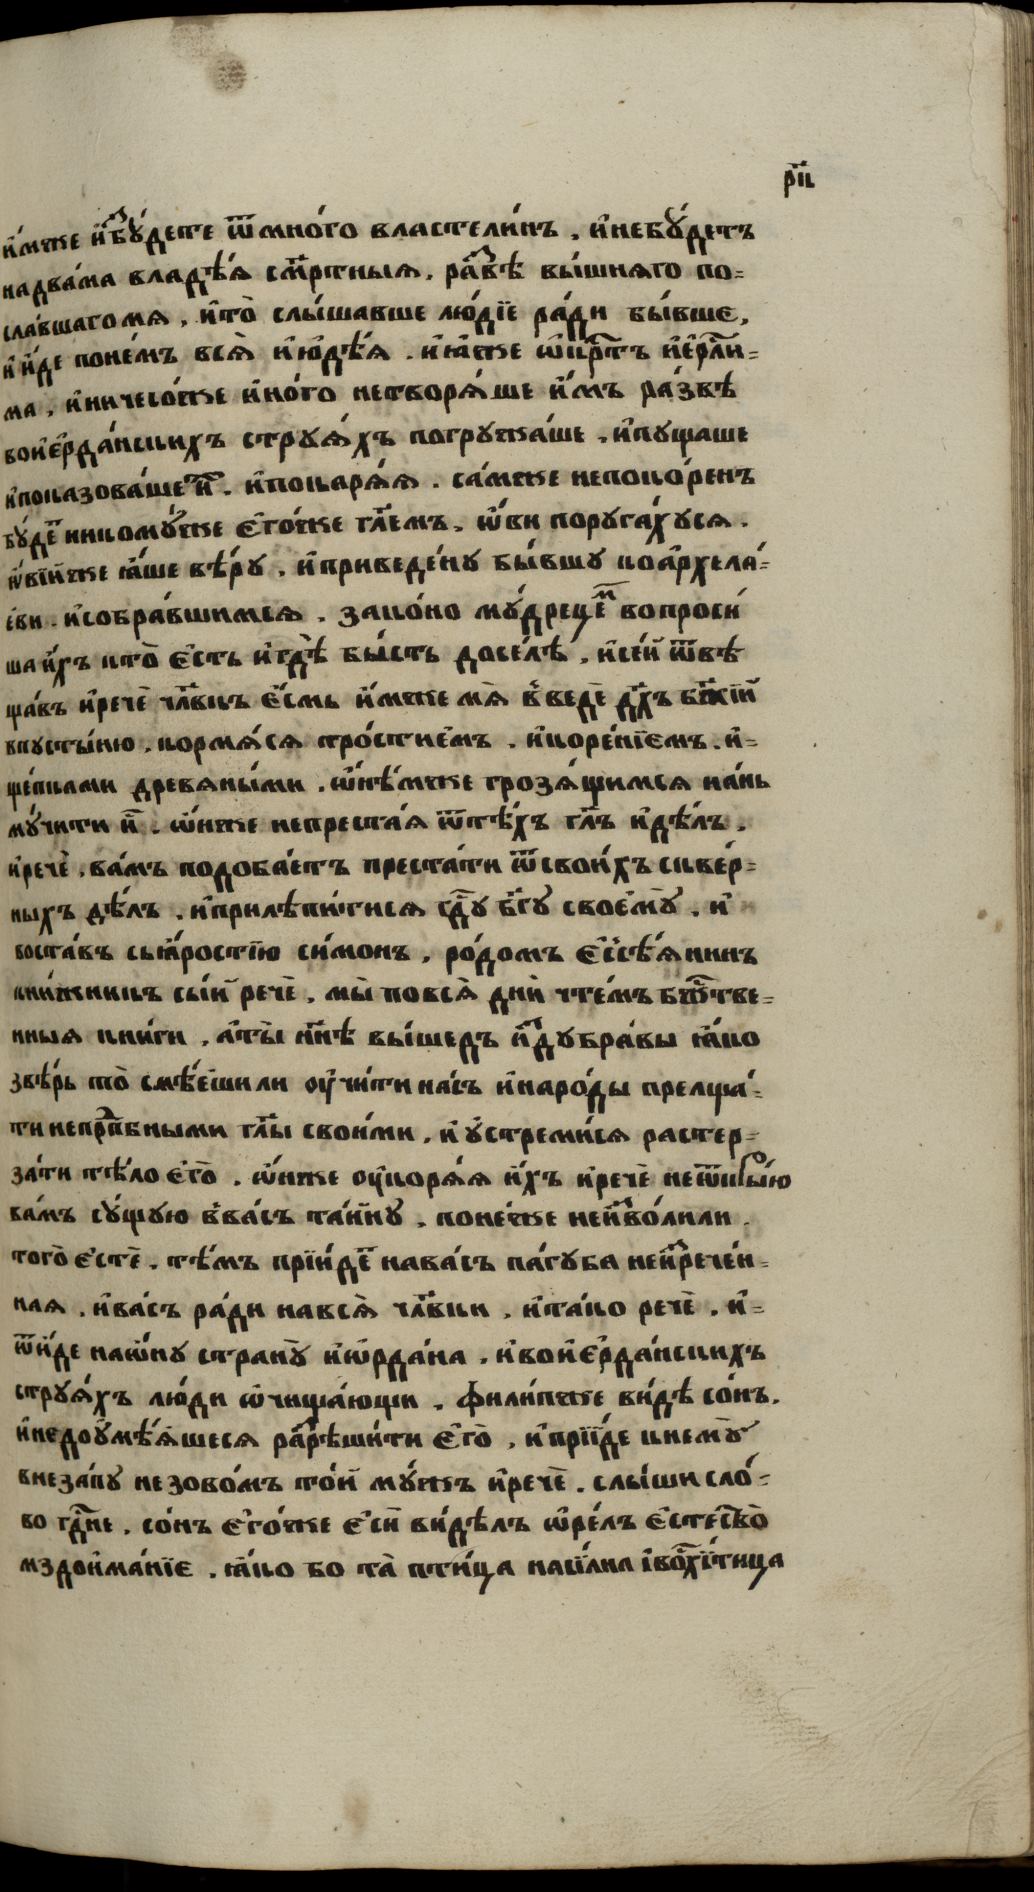 рн҃
и҆́мже и҆збꙋ́дете ѿ мно́го властели́нъ . и҆небꙋ́детъ
надва́ма владѣ́ѧ сме́ртныѧ . ра́звѣ вы́шнѧго по=
сла́вшагомѧ , и҆то̀ слы́шавше лю́дїе ра́ди бы́вше ,
и҆ и҆́де поне́мъ всѧ̀ и҆юдѣ́ѧ . и҆ ꙗ҆́же ѡ҆крⷭ҇тъ и҆є҆рⷭ҇ли=
ма , и҆ничесо́же и҆но́го нетворѧ́ше и҆̀мъ ра́звѣ
вои҆є҆рда́нскихъ струѧ́хъ погружа́ше . и҆пꙋща́ше
и҆показова́ше и҆м . и҆покарѧ́ѧ . са́мже непоко́ренъ
бꙋ́детъ никомꙋ́же є҆го́же гл҃емъ . ѡ҆́ви порꙋга́хꙋсѧ .
ѡ҆́вїи҆же ꙗ҆́ше вѣ́рꙋ . и҆приведе́нꙋ бы́вшꙋ коа҆рхела́=
є҆ви . и҆собра́вшимсѧ . зако́но мꙋ́дрецемъ вопроси́
ша и҆́хъ кто̀ є҆́сть и҆гдѣ̀ бы́сть досе́лѣ . и҆се́й ѿвѣ
ща́въ и҆речѐ чл҃вкъ є҆́смь и҆́мже мѧ̀ в̾ведѐ дх҃ъ бж҃їй
впꙋсты́ню . кормѧ́сѧ тро́стїемъ . и҆коре́нїемъ . и҆=
ще́пками древѧны́ми . ѡ҆нѣ́мже грозѧ́щимсѧ на́нь
мꙋ́чити и҆м . ѡ҆́нже непреста́ѧ ѿ тѣ́хъ гл҃ъ и҆дѣ́лъ .
и҆речѐ . ва́мъ подоба́етъ преста́ти ѿ свои́хъ скве́р=
ныхъ дѣ́лъ . и҆прилѣпи́тисѧ гд҇ꙋ бг҃ꙋ своемꙋ̀ . и҆
воста́въ съꙗ҆́ростїю си́монъ , ро́домъ є҆ссѣ́ѧнинъ
кни́жникъ сы́й речѐ . мы̀ повсѧ̀ дни̑ чте́мъ бж҇тве=
ныѧ кни́ги , а҆ты̀ нн҃ѣ вы́шедъ и҆здꙋбра́вы ꙗ҆́ко
звѣ́рь то̀ смѣ́ешили ᲂу҆чи́ти на́съ и҆наро́ды прелща́=
ти непра́вбными гл҃ы свои́ми . и҆ ᲂу҆стреми́сѧ растер=
за́ти тѣ́ло є҆го̀ . ѡ҆́нже ᲂу҆корѧ́ѧ и҆́хъ и҆речѐ неѿкры́ю
ва́мъ сꙋ́щꙋю в̾ва́съ та́йнꙋ . поне́же неи҆зво́лили
того̀ є҆стѐ . тѣ́мъ прїи́детъ нава́съ па́гꙋба неи҆зрече́н=
наѧ . и҆ва́съ ра́ди навсѧ̀ чл҃вки . и҆та́ко речѐ . и҆=
ѿи́де наѡ҆́нꙋ странꙋ̀ и҆ѡ҆рда́на . и҆вои҆є҆рда́нскихъ
струѧ́хъ лю́ди ѡ҆чища́ющи . фили́пже ви́дѣ со́нъ .
и҆недоᲂу҆мѣ́ѧшесѧ разрѣши́ти є҆го̀ . и҆прїи́де кнемꙋ̀
внеза́пꙋ незово́мъ то́й мꙋ́жъ и҆речѐ . слы́ши сло́=
во гдⷭ҇не . со́нъ є҆го́же є҆си̑ ви́дѣлъ ѡ҆ре́лъ є҆стество̀
мздои҆ма́нїе . ꙗ҆́ко бо та̀ пти́ца наси́лна і҆ восхи́тница